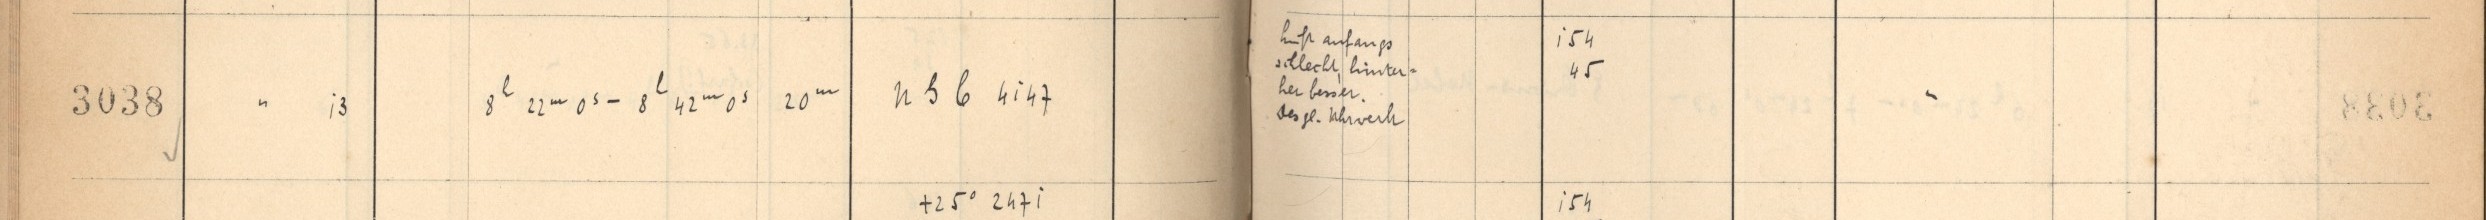 3038 " 13 8h 22m 0s – 8h 42m 0s 20m NGC 4147
Luft anfangs
schlecht, hinter-
her besser.
Desgl. Uhrwerk
154
45
"
+25° 2471
154